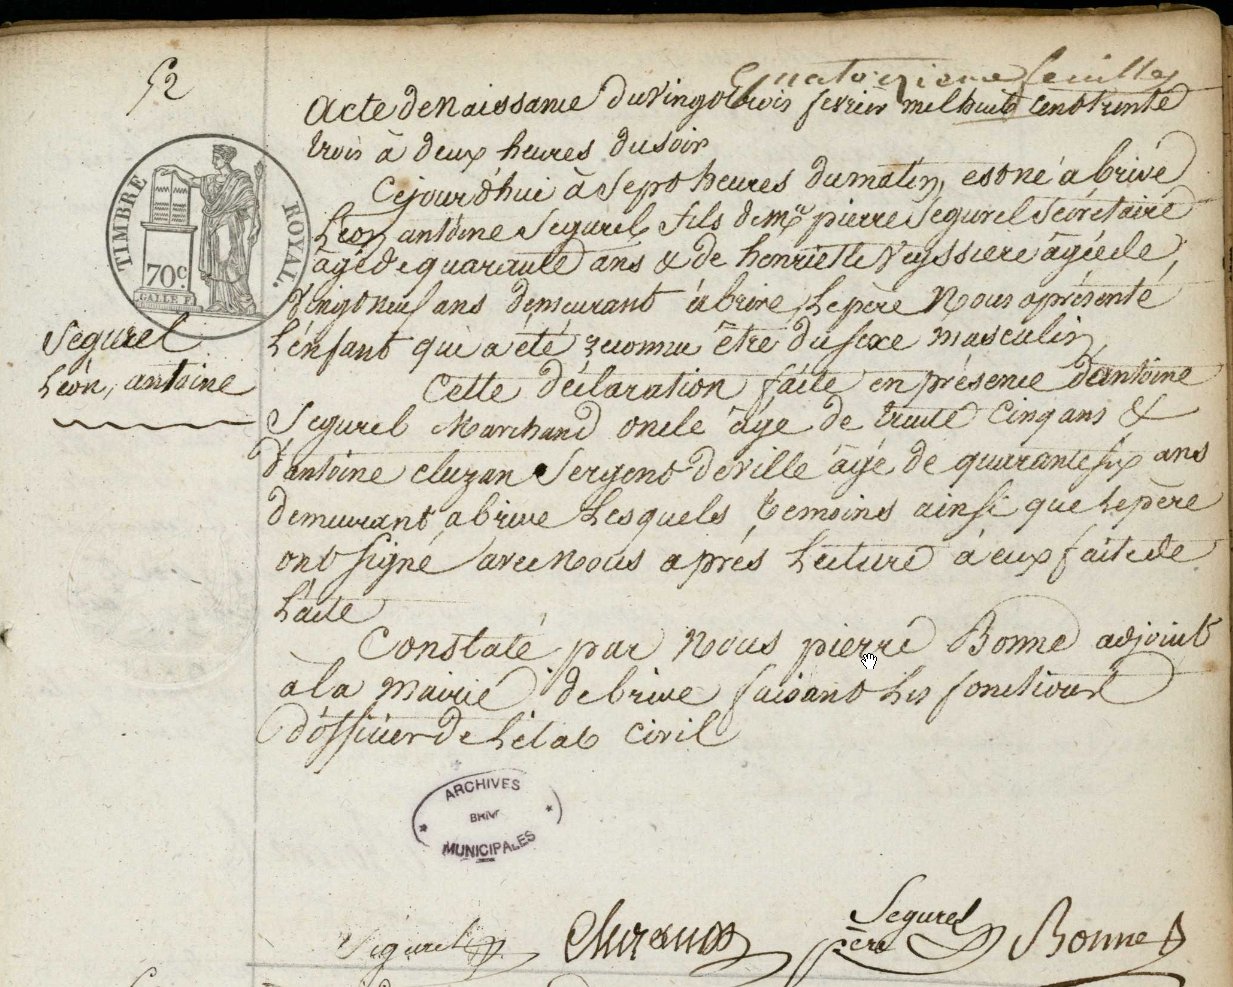 quatorzieme feuille
52
Acte de Naissance du vingt trois fevrier mil huit cent trente
trois à deux heures du soir
Cejourd'hui à sept heures du matin, est né à brive
Léon antoine Segurel fils de Mr pierre Segurel Sécrétaire
âgé de quarante ans & de henriette Veyssiere âgée de
Vingt neuf ans demeurant à brive Le père Nous a présenté
L'énfant qui a été reconnu être du sexe masculin
TIMBRE ROYAL.
70c.
GALLE F.
Ségurel
Léon, antoine
Cette déclaration faite en présence d'antoine
Segurel Marchand oncle âgé de trente cinq ans &
d'antoine cluzan Sergent de ville âgé de quarante six ans
demeurant à brive Lesquels temoins ainsi que Le père
ont signé avec Nous après Lecture à eux faite de
L'acte
Constaté par Nous pierre Bonne adjoint
à la Mairie de brive faisant Les fonctions
d'officier de L'état Civil
ARCHIVES
BRIVE
MUNICIPALES
Segurel
Segurel
père
Bonne